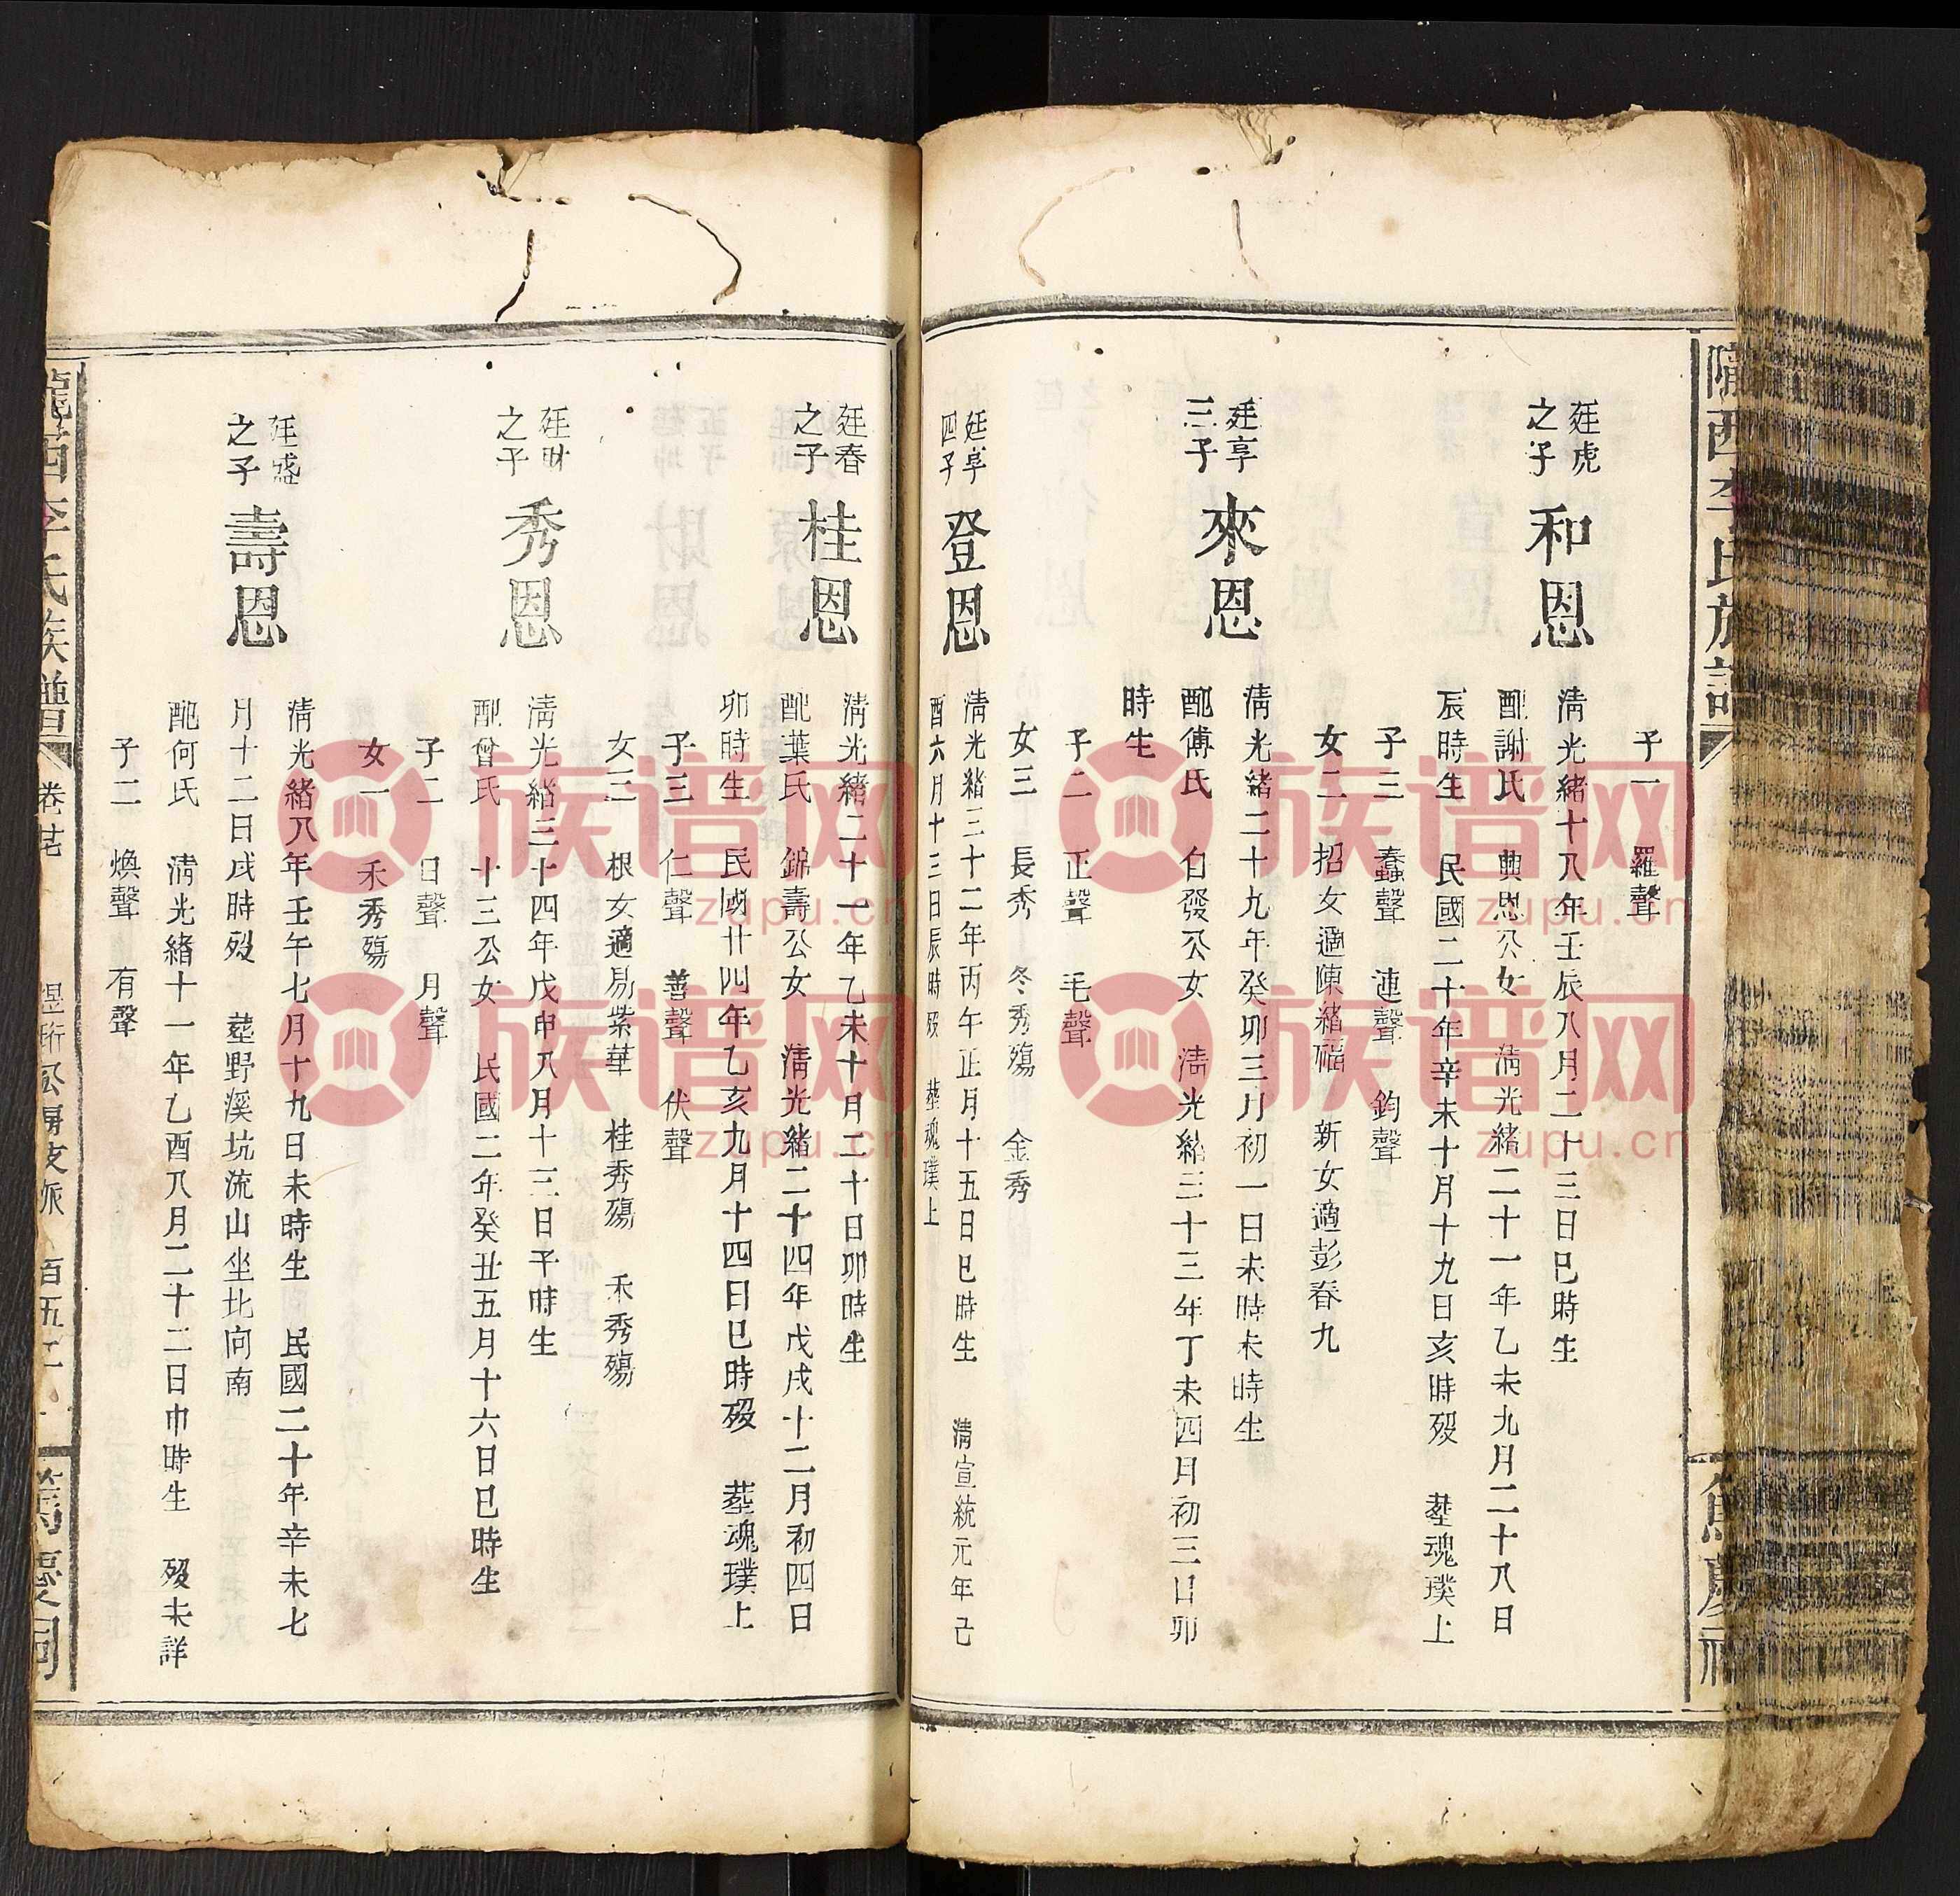 隴西李氏族譜
子一　羅聲
廷虎
之子
和恩
清光緒十八年壬辰八月二十三日巳時生
配謝氏　典恩公女　清光緒二十一年乙未九月二十八日
辰時生　民國二十年辛未十月十九日亥時歿　塟魂璞上
子三　蠢聲　連聲　鈞聲
女二　招女適陳緒福　新女適彭春九
廷享
三子
來恩
清光緒二十九年癸卯三月初一日未時未時生
配傅氏　白發公女　清光緒三十三年丁未四月初三日卯
時生
子二　正聲　毛聲
女三　長秀　冬秀殤　金秀
廷享
四子
登恩
清光緒三十二年丙午正月十五日巳時生　清宣統元年己
酉六月十三日辰時歿　塟魂璞上
廷春
之子
桂恩
清光緒二十一年乙未十月二十日卯時生
配葉氏　錦壽公女　清光緒二十四年戊戌十二月初四日
卯時生　民國廿四年乙亥九月十四日巳時歿　塟魂璞上
子三　仁聲　善聲　伏聲
女三　根女適易紫華　桂秀殤　禾秀殤
廷財
之子
秀恩
清光緒三十四年戊申八月十三日子時生
配曾氏　十三公女　民國二年癸丑五月十六日巳時生
子二　日聲　月聲
女一　禾秀殤
廷盛
之子
壽恩
清光緒八年壬午七月十九日未時生　民國二十年辛未七
月十二日戌時歿　塟野溪坑流山坐北向南
配何氏　清光緒十一年乙酉八月二十二日巾時生　歿未詳
子二　煥聲　有聲
隴西李氏族譜　卷茊　百五十
篤慶祠
族谱网
zupu.cn
族谱网
zupu.cn
族谱网
zupu.cn
族谱网
zupu.cn